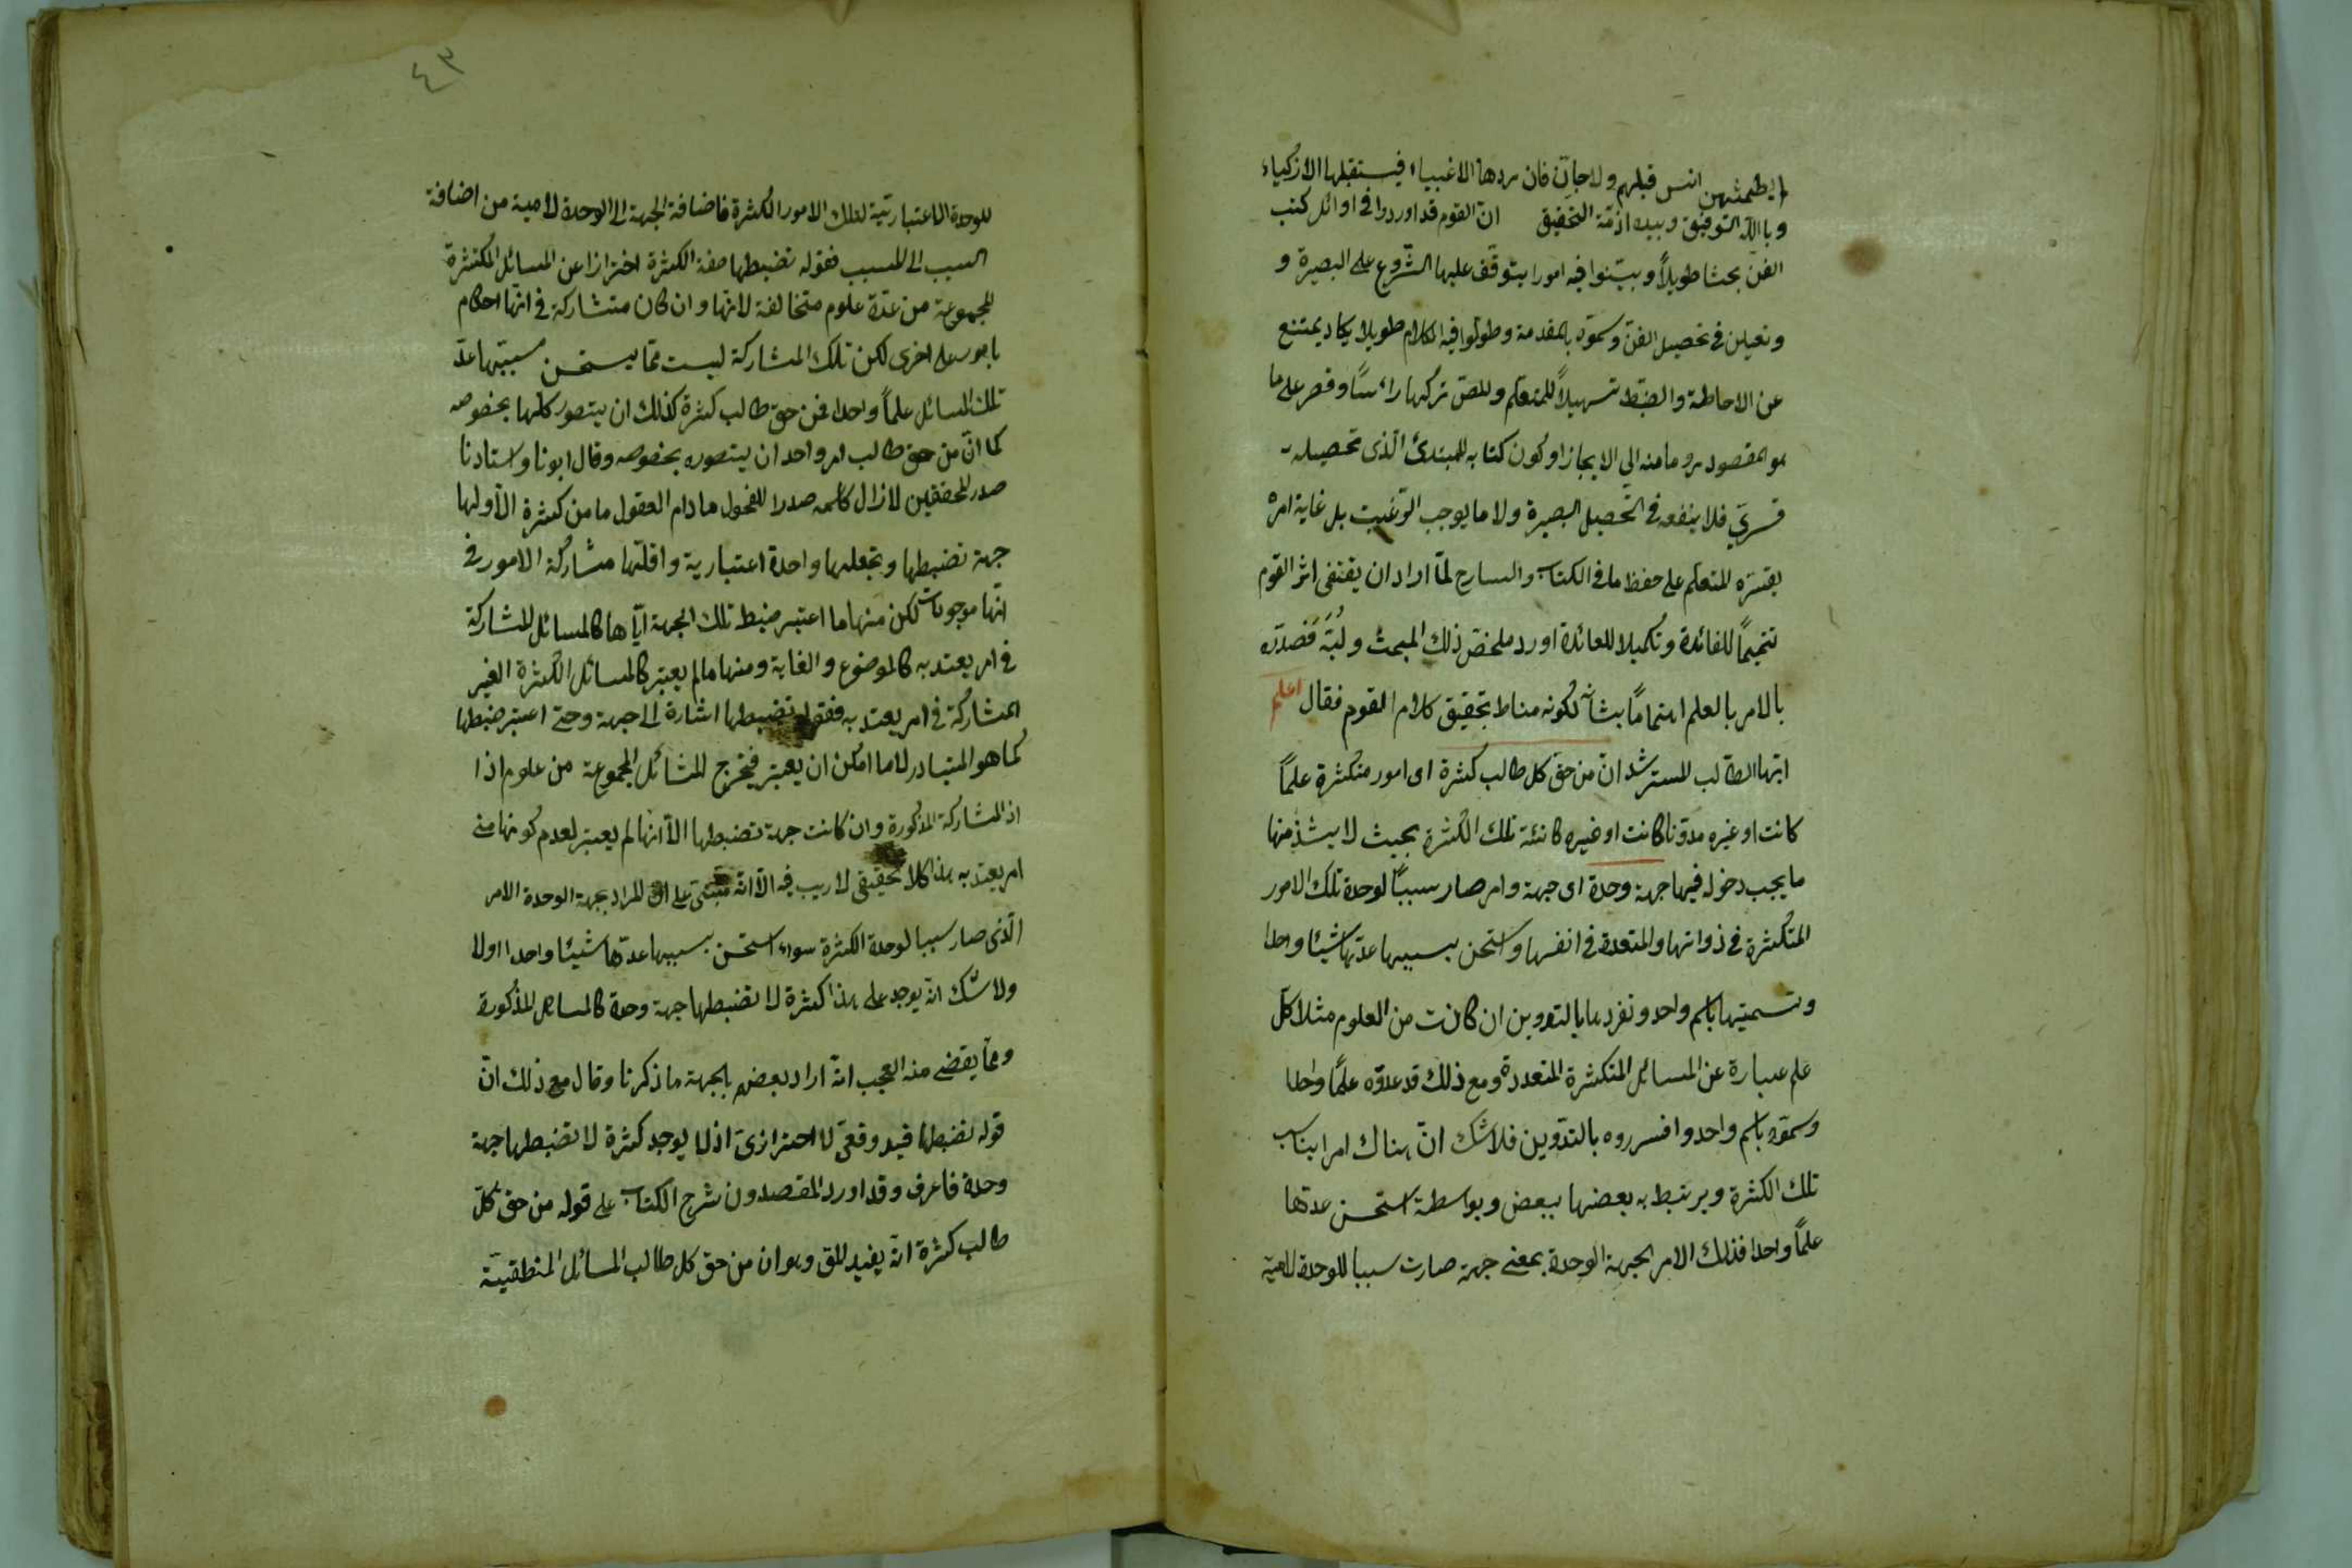 لم يطمثهن انس قبلهم ولا جان فان ردها الاغبياء فيستقبلها الازكياء
وبالله التوفيق وبيده ازمّة التحقيق انّ القوم قد اوردوا فى اوائل كتب
الفن بحثا طويلاً وبيّنوا فيه امورا يتوقّف عليها الشّروع على البصيرة و
وتعين فى تحصيل الفنّ وسمّوه بالمقدمة وطولوا فيه الكلام طويلا يكاد يمتنع
عن الاحاطة والضبط تسهيلاً للمتعلّم وللمصّ تركها رائساً وقصر على ما
هو المقصود روما منه الي الايجاز او كون كتابه للمبتدئ الّذى تحصيله
قسريّ فلا ينفعه فى التّحصيل البصيرة ولا ما يوجب الترغيب بل غاية امره
يقسره المتعلّم على حفظ ما فى الكتاب والشارح لمّا اراد ان يقتفى اثر القوم
تتميماً للفائدة وتكميلا للعائدة اورد ملخص ذلك المبحث ولُبَّه فصدّره
بالامر بالعلم اهتماماً بشانه لكونه مناط تحقيق كلام القوم فقال اعلم
ايّها الطالب المسترشد انّ من حق كل طالب كثرة اى امور متكثرة علماً
كانت او غيره مدوّنا كانت او غيره كائنة تلك الكثرة بحيث لا يشذ منها
ما يجب دخوله فيها جهة وحدة اى جهة وامر صار سبباً لوحدة تلك الامور
المتكثرة فى ذواتها والمتعددة فى انفسها واستحن بسببها عدّها شيئا واحدا
وتسميتها باسم واحد وتفردها بالتدوين ان كانت من العلوم مثلا كلّ
علم عبارة عن المسائل المتكثرة المتعددة ومع ذلك قد عدّوه علمًا واحدا
وسمّوه باسم واحد وافسرروه بالتدّوين فلا شك انّ هناك امرا يناسب
تلك الكثرة ويرتبط به بعضها ببعض وبواسطة استحسن عدّها
علماً واحدا فذلك الامر الجهة الوحدة بمعنى جهة صارت سببا للوحدة
للوحدة الاعتباريّة لتلك الامور الكثرة فاضافة الجهة الى الوحدة لامية من اضافة
السبب الى المسبب فقوله تضبطها صفة الكثرة احترازا عن المسائل المتكثرة
المجموعة من عدّة علوم متخالفة لانها وان كان متشاركة فى انّها احكام
بامور على اخرى لكن تلك المشاركة ليست ممّا يستحسن بسببها عدّ
تلك المسائل علماً واحدا فمن حق طالب كثرة كذلك ان يتصور كلها بخصوصه
كما انّ من حق طالب امر واحد ان يتصوره بخصوصه وقال ابونا واستادنا
صدر المحققين لا زال كاسمه صدرا للفحول ما دام العقول ما من كثرة الّا ولها
جهة تضبطها وتجعلها واحدة اعتبارية واقلّها مشاركة الامور فى
انّها موجودات لكن منها ما اعتبر ضبط تلك الجهة ايّاها كالمسائل المشاركة
فى امر يعتد به كالموضوع والغاية ومنها ما لم يعتبر كالمسائل الكثرة الغير
المشاركة فى امر يعتد به فقوله تضبطها اشارة الى جهة وحتى اعتبر ضبطها
كما هو المتبادر لا ما امكن ان يعتبر فيخرج المسائل المجموعة من علوم اذا
اذ المشاركة المذكورة وان كانت جهة تضبطها الّا انها لم يعتبر لعدم كونها من
امر يعتد به هذا كلام تحقيقى لا ريب فيه الّا انّه مبتنى على ان المراد بجهة الوحدة الامر
الّذى صار سببا لوحدة الكثرة سواء استحسن بسببها عدّها شيئا واحدا اولا
ولا شك انّه يوجد على هذا كثرة لا تضبطها جهة وحدة كالمسائل المذكورة
وممّا يقضى منه العجب انّه اراد بعضهم بالجهة ما ذكرنا وقال مع ذلك انّ
قوله تضبطها قيد وقعىّ لا احترازىّ اذ لا يوجد كثرة لا تضبطها جهة
وحدة فاعرف وقد اورد المقصدون شرح الكتاب على قوله من حق كلّ
طالب كثرة انّه يفيد للق وهو ان من حق كل طالب المسائل المنطقيّة
٤٣